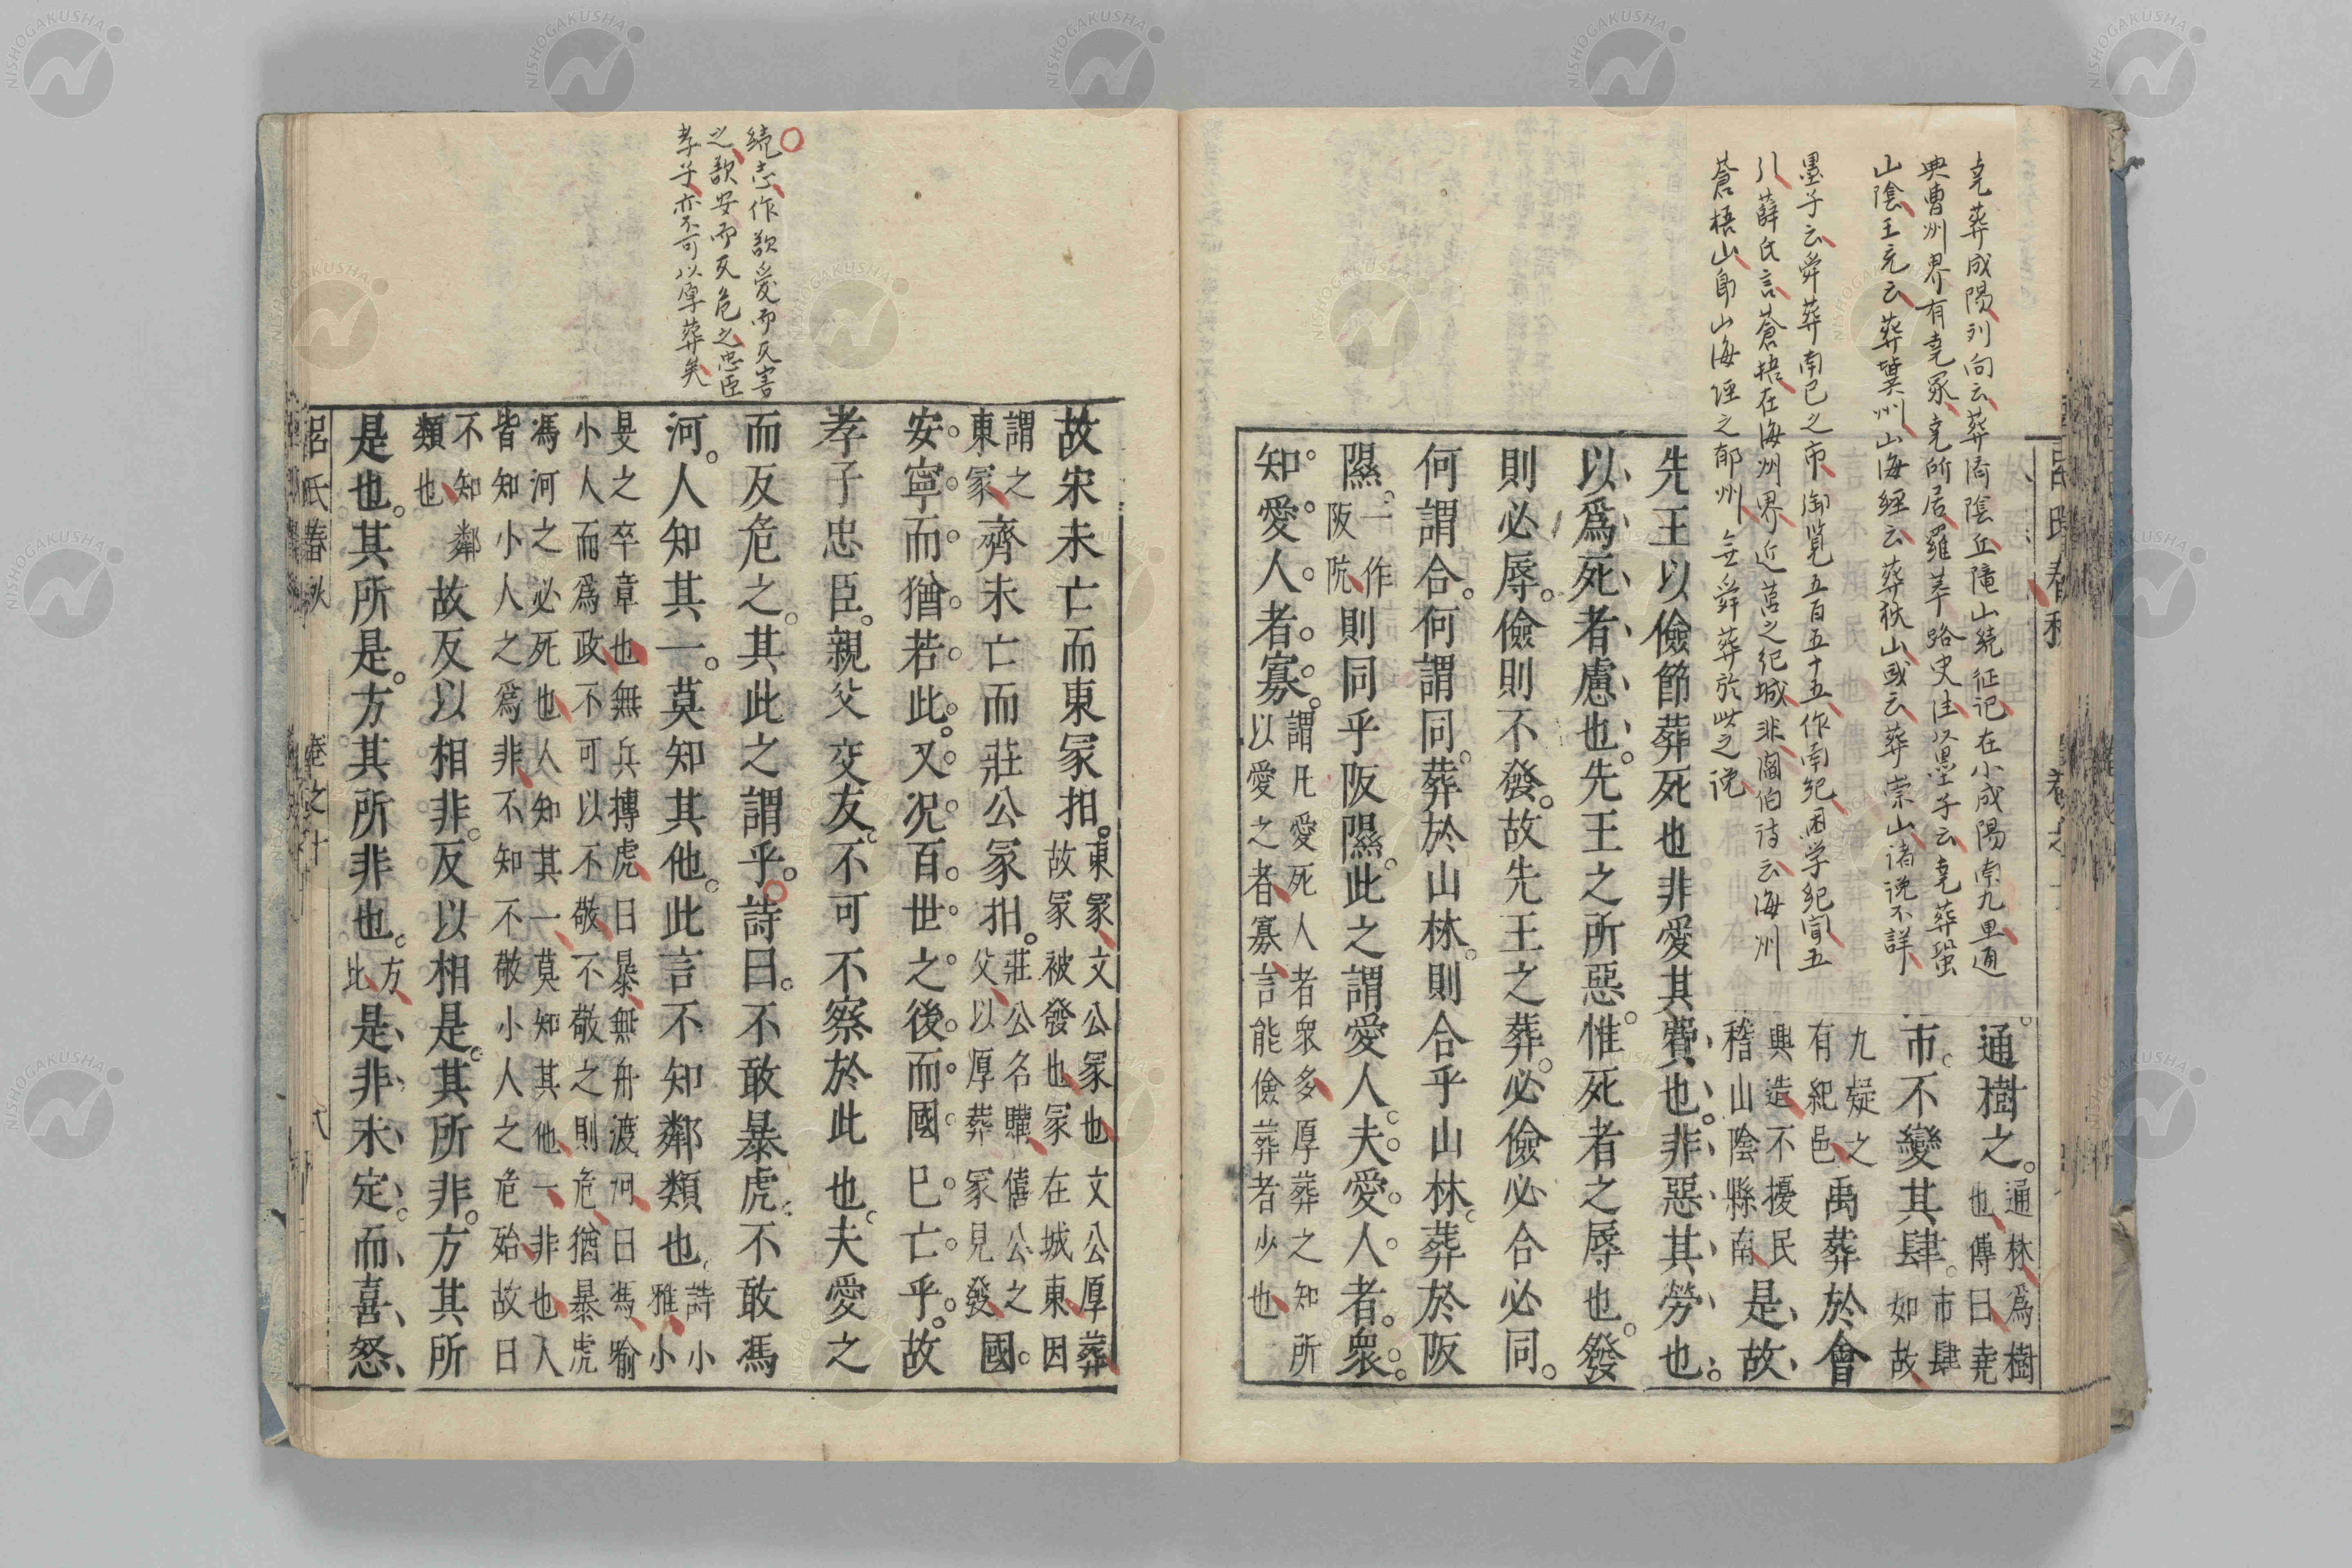 堯葬成陽列向云葬濟陰丘隴山続征记在小成陽南九里通
典曹州界有堯冢堯所居羅苹路史注以墨子云堯葬蛩
山陰王充云葬冀州山海經云葬狄山或云葬崇山諸說不詳
墨子云舜葬南巳之市御覧五百五十五作南紀困学紀聞五
引薛氏言蒼梧在海州界近莒之紀城非閻伯诗云海州
蒼梧山即山海經之郁州無舜葬於此之说
通樹之通林爲樹
也傳曰堯
市不變其肆市肆
如故
九疑之
有紀邑禹葬於會
稽山陰縣南
興造不擾民是故
先王以儉節葬死也非愛其費也非惡其勞也
以爲死者慮也先王之所惡惟死者之辱也發
則必辱儉則不發故先王之葬必儉必合必同
何謂合何謂同葬於山林則合乎山林葬於阪
隰一作
阪阬則同乎阪隰此之謂愛人夫愛人者衆
知愛人者寡謂凡愛死人者衆多厚葬之知所
以愛之者寡言能儉葬者少也
続志作歖愛而反害
之歖安而反危之忠臣
孝子亦不可以厚葬矣
故宋未亡而東冢抇東冢文公冢也文公厚葬
故冢被發也冢在城東因
謂之
東冢齊未亡而莊公冢抇莊公名購僖公之
父以厚葬冢見發國
安寧而猶若此又況百世之後而國已亡乎故
孝子忠臣親父交友不可不察於此也夫愛之
而反危之其此之謂乎詩曰不敢暴虎不敢馮
河人知其一莫知其他此言不知鄰類也詩小
雅小
旻之卒章也無兵搏虎曰暴無舟渡河曰馮喻
小人而爲政不可以不敬不敬之則危猶暴虎
馮河之必死也人知其一莫知其他一非也人
皆知小人之爲非不知不敬小人之危殆故曰
不知鄰
類也故反以相非反以相是其所非方其所
是也其所是方其所非也方
比是非未定而喜怒
呂氏春秋 卷之十 八